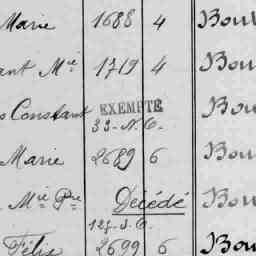 Marie 1688 4 Bou
ant Mie 1719 4 Bou
s Constant EXEMPTÉ Bou
33-N.C.
Marie 2689 6 Bou
Mie Pre Décédé Bou
127-S.C.
Félix 2699 6 Bou